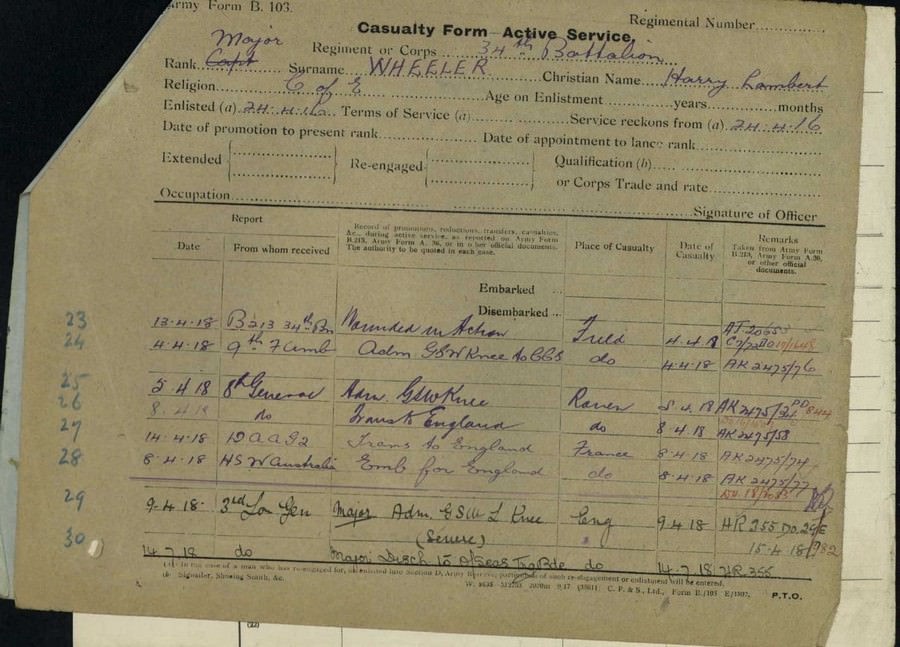 Army Form B. 103.
Regimental Number
Casualty Form Active Service.
Major
Regiment or Corps 34th Battalion
Rank Capt Surname WHEELER Christian Name Harry Lambert
Religion C of E Age on Enlistment years months
Enlisted (a) 24.4.16 Terms of Service (a) Service reckons from (a) 24.4.16
Date of promotion to present rank Date of appointment to lance rank
Extended Re-engaged Qualification (b)
or Corps Trade and rate
Occupation
Signature of Officer
Report
Date From whom received
Record of promotions, reductions, transfers, casualties, &c., during active service, as reported on Army Form B.213, Army Form A. 36, or in other official documents. The authority to be quoted in each case.
Place of Casualty
Date of Casualty
Remarks
Taken from Army Form B.213, Army Form A.36, or other official documents.
Embarked ...
Disembarked ...
23 13.4.18 B213 34th Bn Wounded in Action Field 4.4.18
24 4.4.18 9th F Amb Adm GSW Knee to CCS do 4.4.18 AK 2475/76
25 5.4.18 8th General Adm. GSW Knee Rouen 5.4.18 AK 2475/
26 8.4.18 do Trans to England do 8.4.18 AK 2475/58
27 14.4.18 DAAG2 Trans to England France 8.4.18 AK 2475/74
28 8.4.18 HS W Australia Emb for England do 8.4.18 AK 2475/77
29 9.4.18 3rd Lon Gen Major Adm. GSW L Knee Eng 9.4.18 HR 355
(Severe) 15.4.18
30 14.7.18 do Major Disch to O/Seas Trg Bde do 14.7.18 HR 355
(a) In the case of a man who has re-engaged for, or enlisted into Section D, Army Reserve, particulars of such re-engagement or enlistment will be entered.
(b) Signaller, Shoeing Smith, &c.
C. P. & S., Ltd., Form B./103 E/1807. P.T.O.